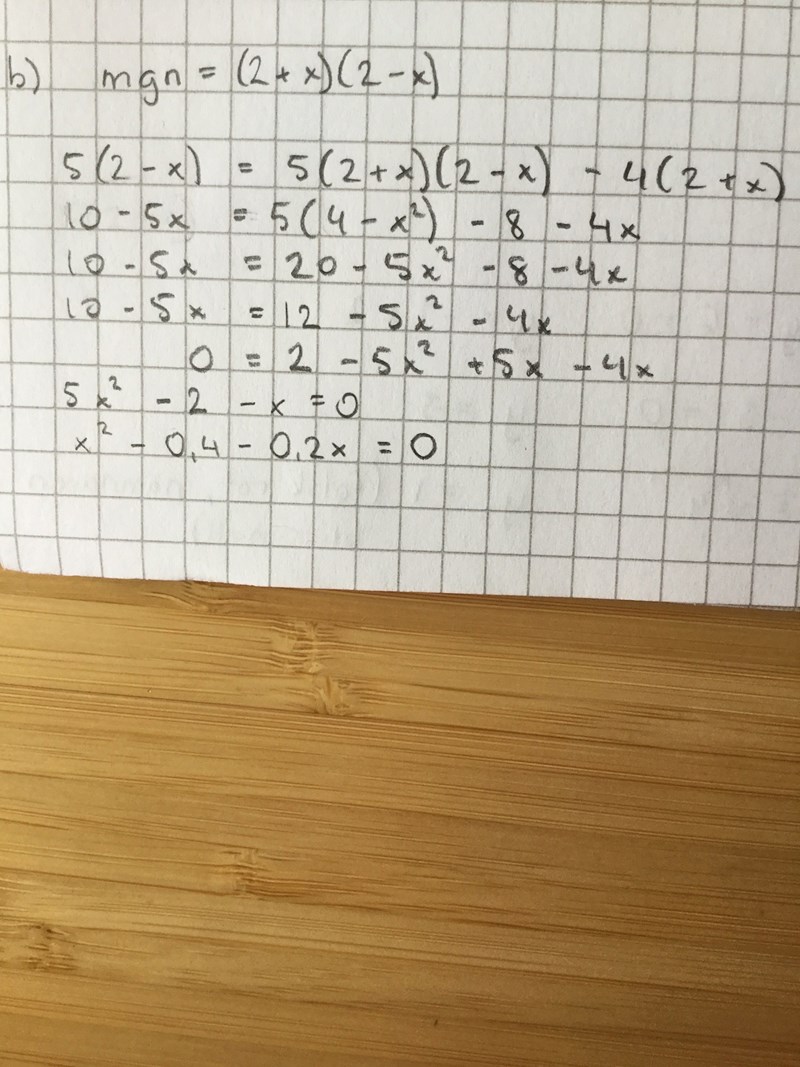 b) mgn = (2+x)(2-x)
5(2-x) = 5(2+x)(2-x) - 4(2+x)
10 - 5x = 5(4-x²) - 8 - 4x
10 - 5x = 20 - 5x² - 8 - 4x
10 - 5x = 12 - 5x² - 4x
0 = 2 - 5x² + 5x - 4x
5x² - 2 - x = 0
x² - 0,4 - 0,2x = 0